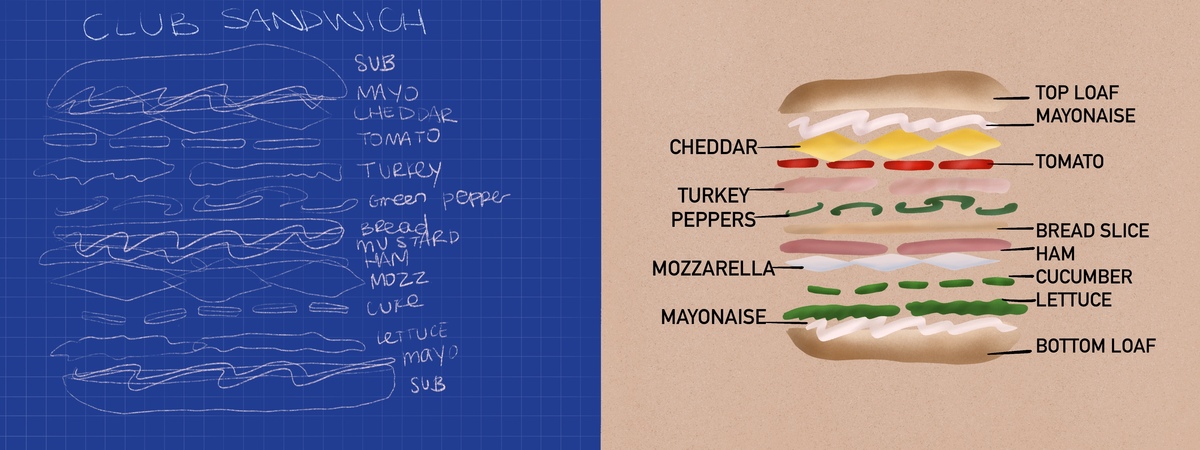 CLUB SANDWICH
SUB
MAYO
CHEDDAR
TOMATO
TURKEY
Green pepper
Bread
MUSTARD
HAM
MOZZ
CUKE
LETTUCE
mayo
SUB
TOP LOAF
MAYONAISE
CHEDDAR
TOMATO
TURKEY
PEPPERS
BREAD SLICE
HAM
MOZZARELLA
CUCUMBER
LETTUCE
MAYONAISE
BOTTOM LOAF